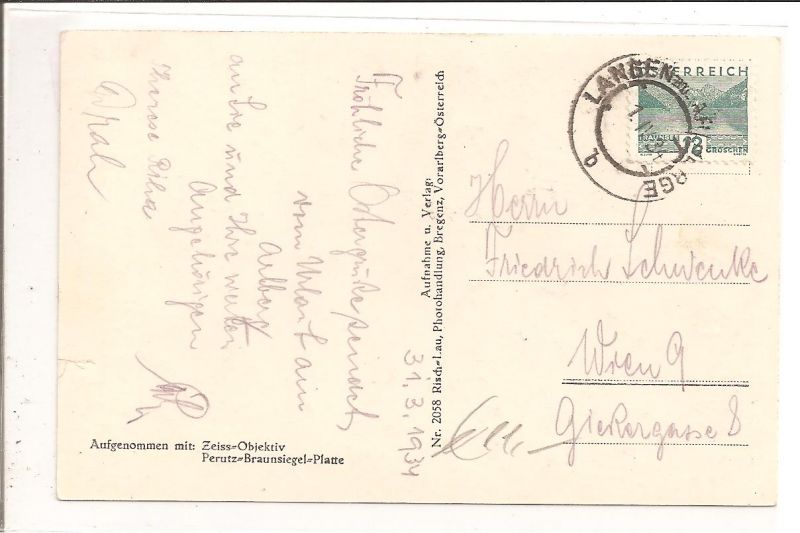 Fröhliche Ostergrüße sendet
vom Urlaub am
Arlberg
an Sie und Ihre werten
Angehörigen
Therese
31.3.1934
Aufgenommen mit: Zeiss=Objektiv
Perutz=Braunsiegel=Platte
Nr. 2058 Risch=Lau, Photohandlung, Bregenz, Vorarlberg=Österreich
Aufnahme u. Verlag:
LANGEN
BERGE
b
ÖSTERREICH
TRAUNSEE
12
GROSCHEN
Herrn
Friedrich Schwenke
Wien 9
8